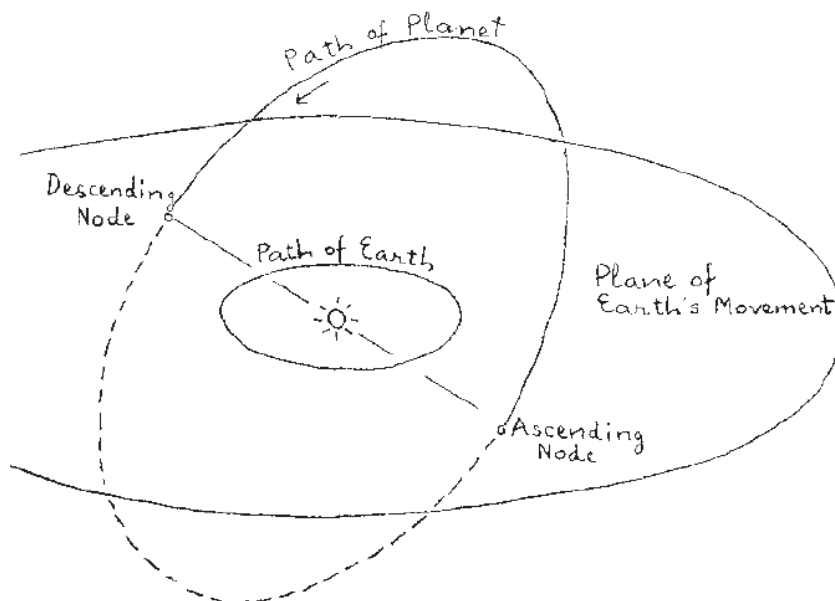 Path of Planet
Descending
Node
Path of Earth
Plane of
Earth's Movement
Ascending
Node